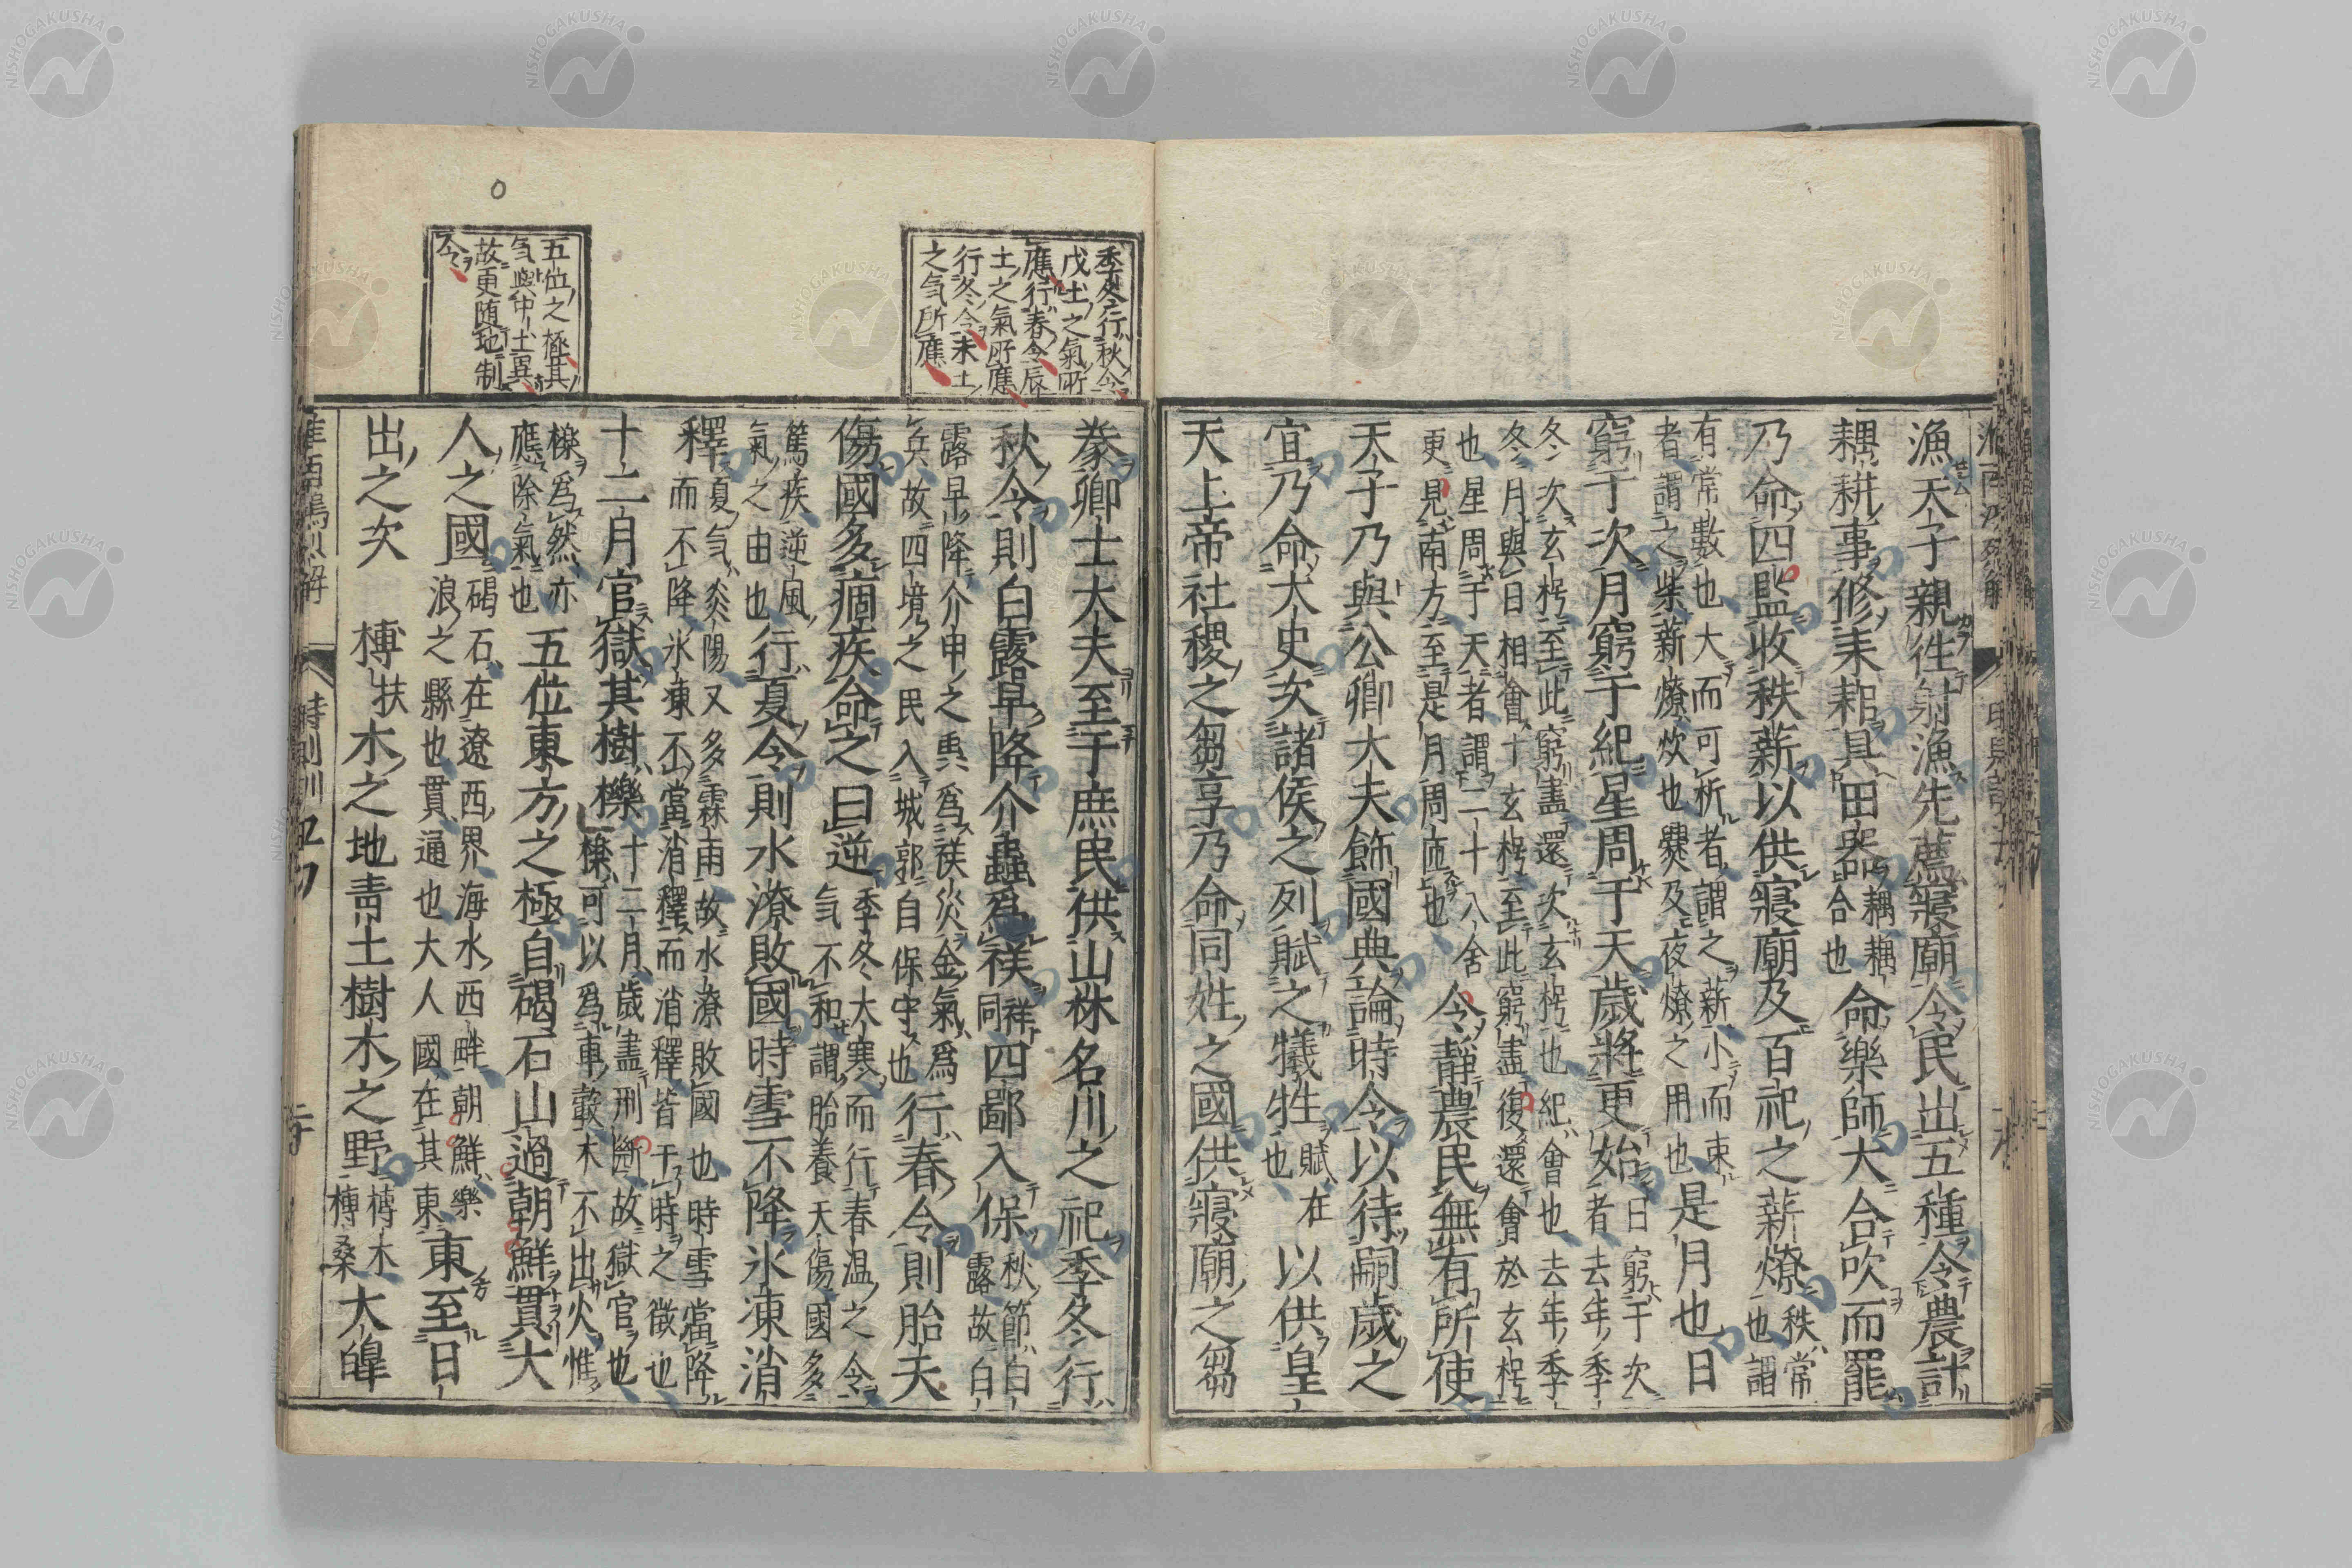 漁天子親徃射漁先薦寢廟令民出五種令農計
耦耕事修耒耜具田器耦耦合也命樂師大合吹而罷
乃命四監收秩薪以供寢廟及百祀之薪燎秩常也謂
有常數也大而可析者謂之薪小而束
者謂之柴薪燎炊爨及夜燎之用也是月也日
窮于次月窮于紀星周于天歲將更始日窮于次者去年季
冬次玄枵至此窮盡還次玄枵也紀會也去年季
冬月與日相會于玄枵至此窮盡復還會於玄枵
也星周于天者謂二十八舍
更見南方至是月周匝也令靜農民無有所使
天子乃與公卿大夫飾國典論時令以待嗣歲之
宜乃命大史次諸侯之列賦之犧牲賦在也以供皇
天上帝社稷之芻享乃命同姓之國供寢廟之芻
季冬行秋令
戊土之氣所
應行春令辰
土之氣所應
行冬令未土
之氣所應
豢卿士大夫至于庶民供山林名川之祀季冬行
秋令則白露早降介蟲爲祅祥同四鄙入保秋節白露故白
露早降介甲之蟲爲祅災金氣爲
兵故四境之民入城郭自保守也行春令則胎夭
傷國多痼疾命之曰逆季冬大寒而行春温之令
氣不和謂胎養夭傷國多
篤疾逆風
氣之由也行夏令則水潦敗國時雪不降氷凍消
釋夏気炎陽又多霖雨故水潦敗國也時雪當降
而不降氷凍不當消釋而消釋皆干時之徵也
十二月官獄其樹櫟十二月歲盡刑斷故獄官也
櫟可以爲車轂木不出火惟
櫟爲然亦
應除氣也五位東方之極自碣石山過朝鮮貫大
人之國碣石在遼西界海水西畔朝鮮樂
浪之縣也貫通也大人國在其東東至日
出之次榑扶木之地青土樹木之野榑木
榑桑大皥
五位之極其
気與中土異
故更随地制
令
時則訓